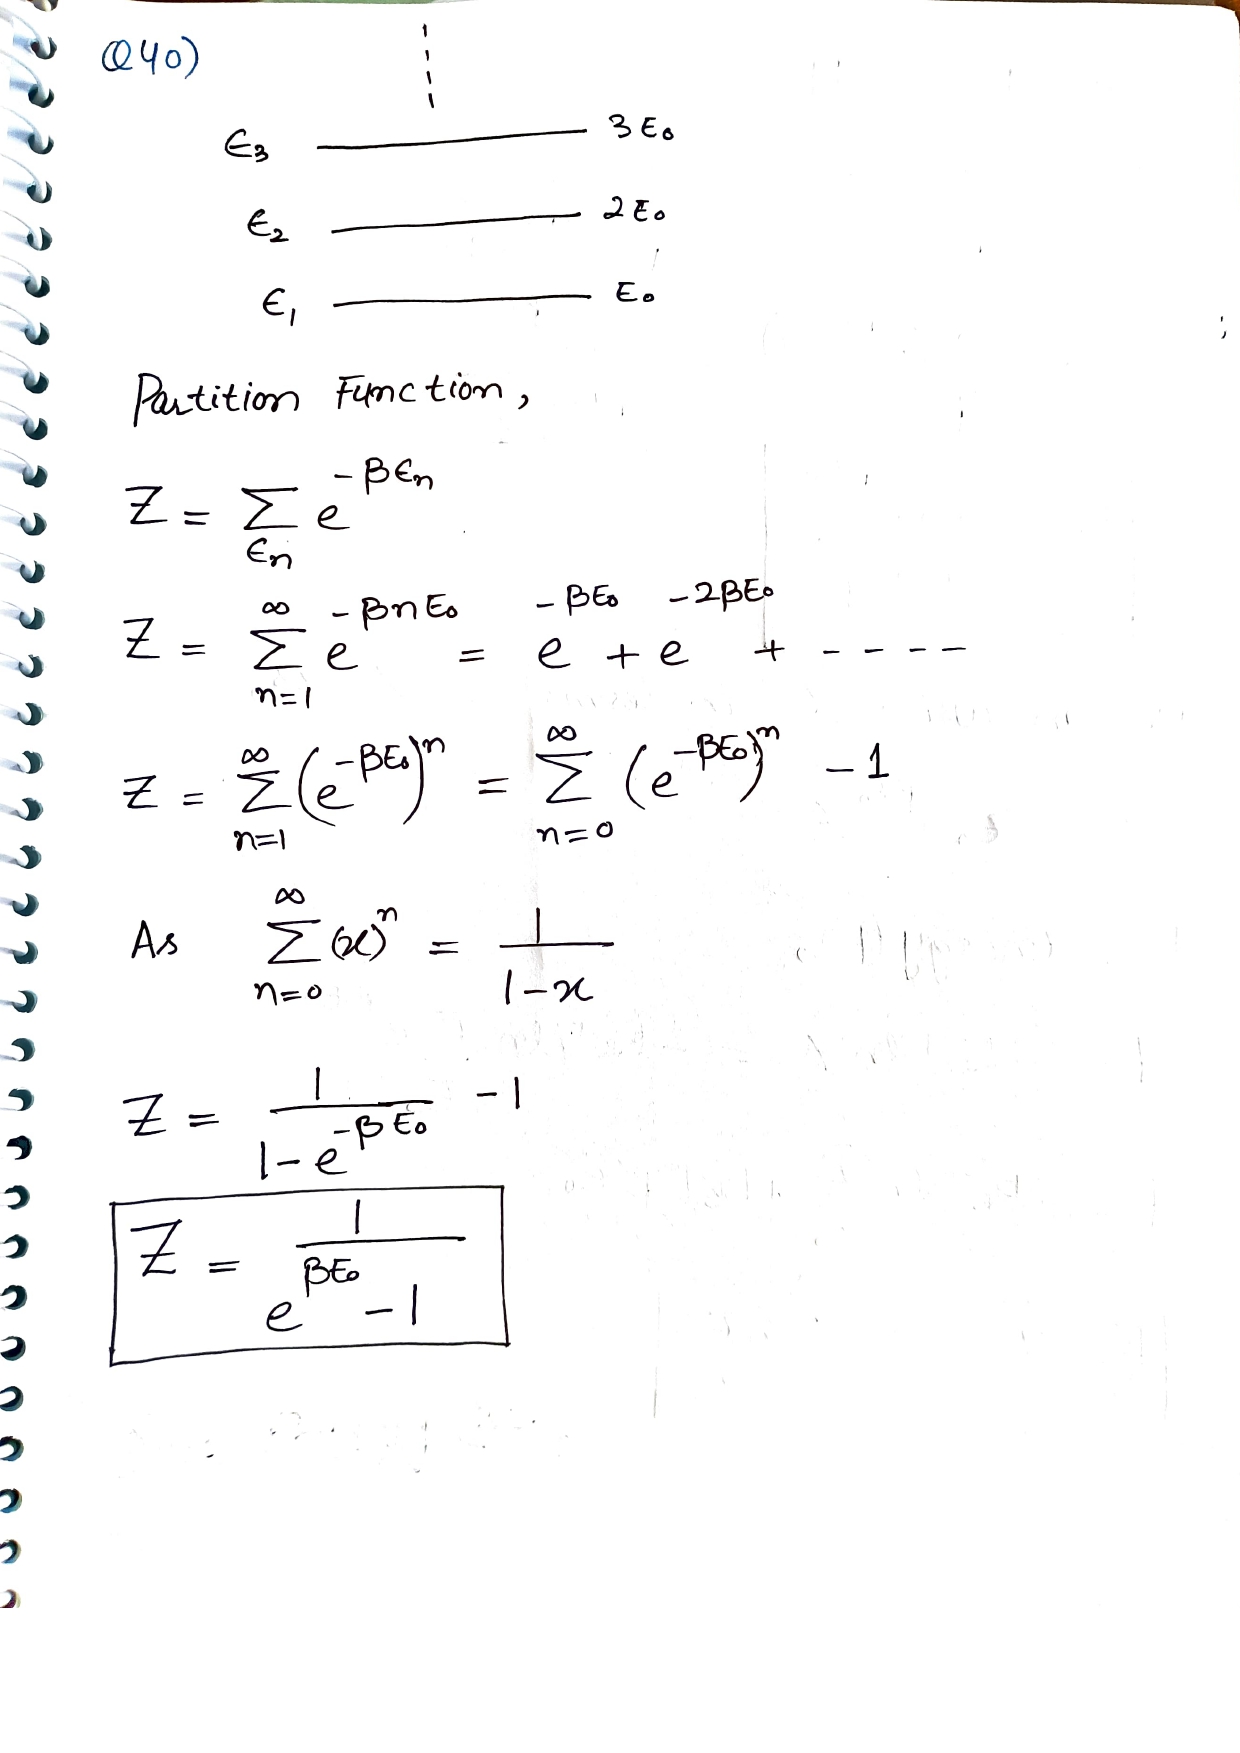 Q40)
ϵ₃ 3E₀
ϵ₂ 2E₀
ϵ₁ E₀
Partition Function,
Z = Σ_{ϵn} e^{-βϵn}
Z = Σ_{n=1}^{∞} e^{-βnE₀} = e^{-βE₀} + e^{-2βE₀} + ----
Z = Σ_{n=1}^{∞} (e^{-βE₀})^n = Σ_{n=0}^{∞} (e^{-βE₀})^n - 1
As Σ_{n=0}^{∞} (x)^n = 1/(1-x)
Z = 1/(1-e^{-βE₀}) - 1
Z = 1/(e^{βE₀} - 1)